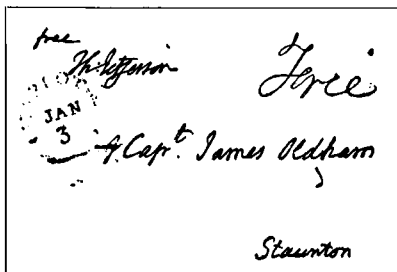 free
Th: Jefferson
Free
JAN
3
Capt. James Oldham
Staunton